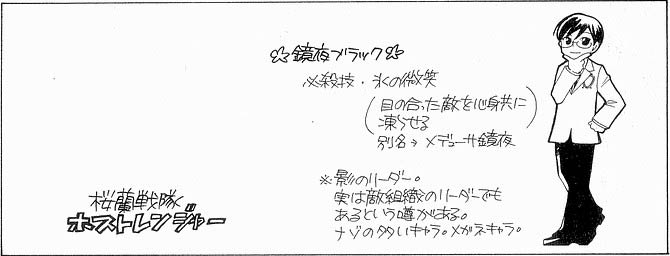 ☆鏡夜ブラック☆
必殺技・氷の微笑
(目の合った敵を心身共に
凍らせる
別名→メデューサ鏡夜)
※影のリーダー。
実は敵組織のリーダーでも
あるという噂がある。
ナゾの多いキャラ。メガネキャラ。
桜蘭戦隊
ホストレンジャー